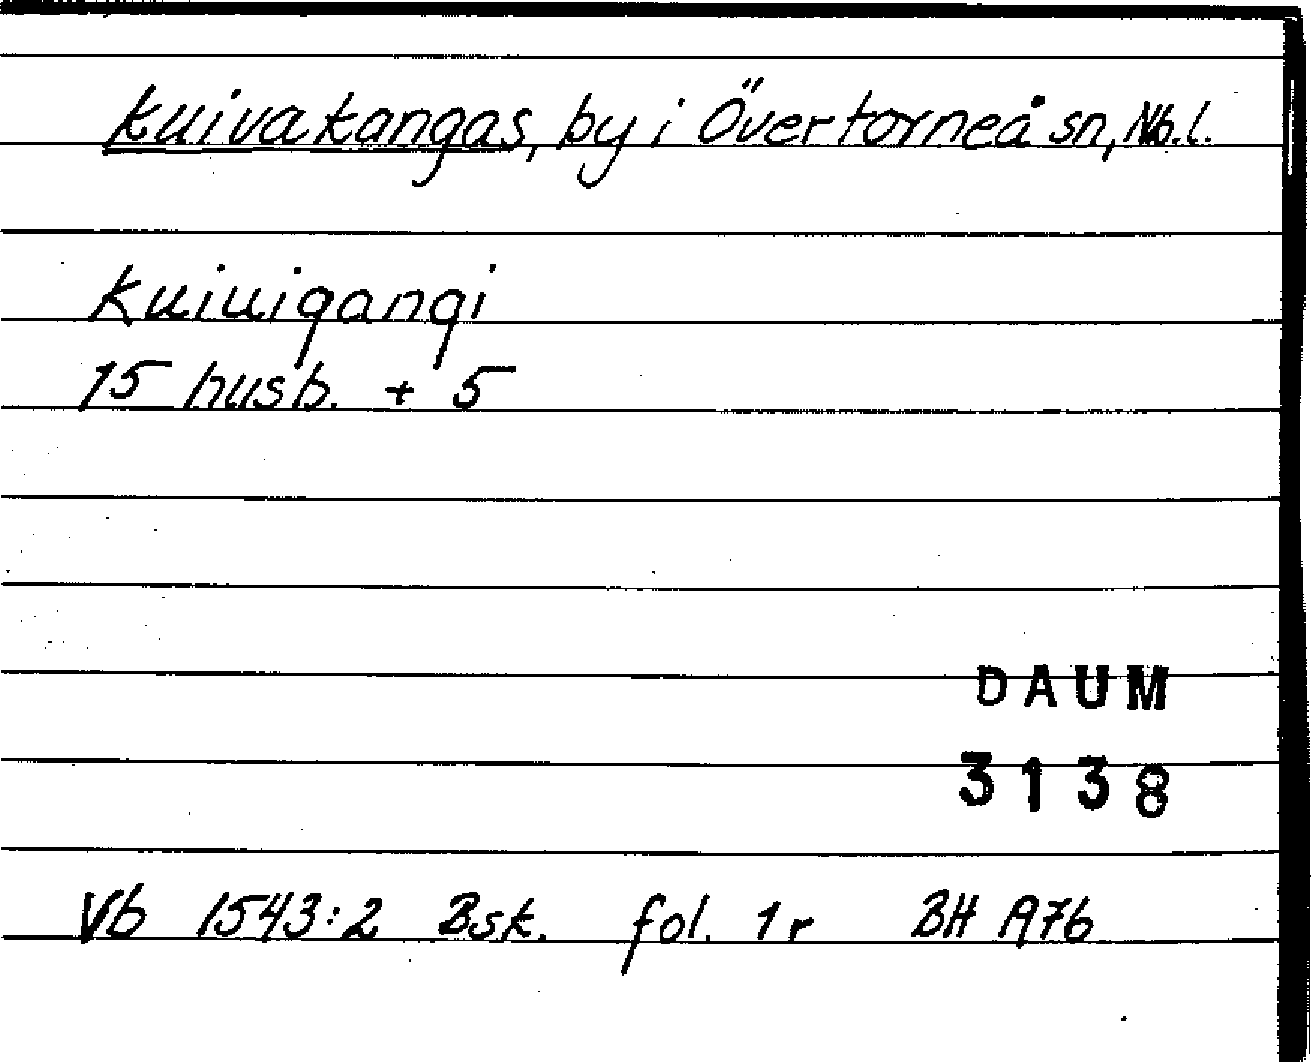 Kuivakangas, by i Övertorneå sn, Nb.l.
Kuiuigangi
15 husb. + 5
DAUM
3138
Vb 1543:2 Bsk. fol. 1r BH A76